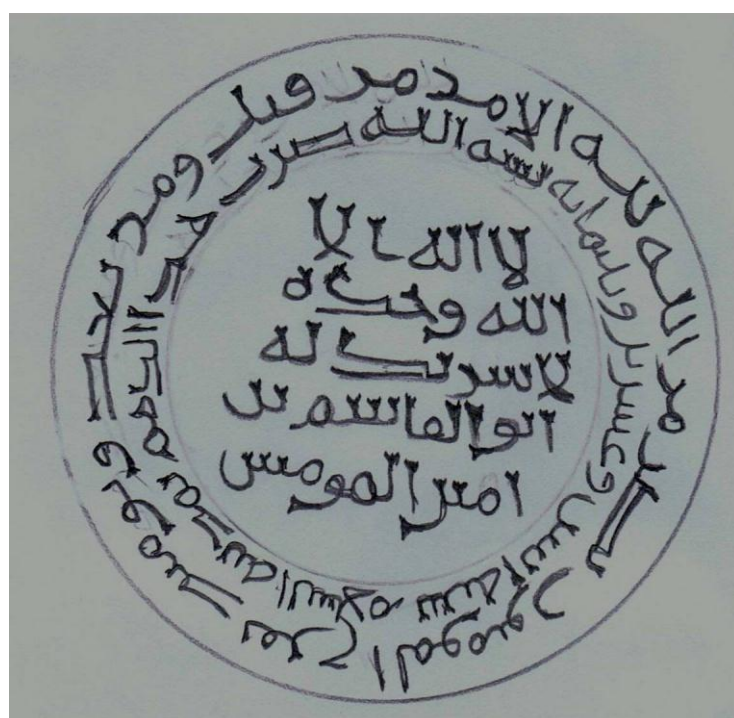 لا اله الا
الله وحده
لا شريك له
ابو القاسم بن
امير المومنين
بسم الله ضرب هذا الدرهم بمدينه السلام سنه اثنين وعشرين وثلثمايه
لله الامر من قبل ومن بعد ويوميذ يفرح المومنون بنصر الله